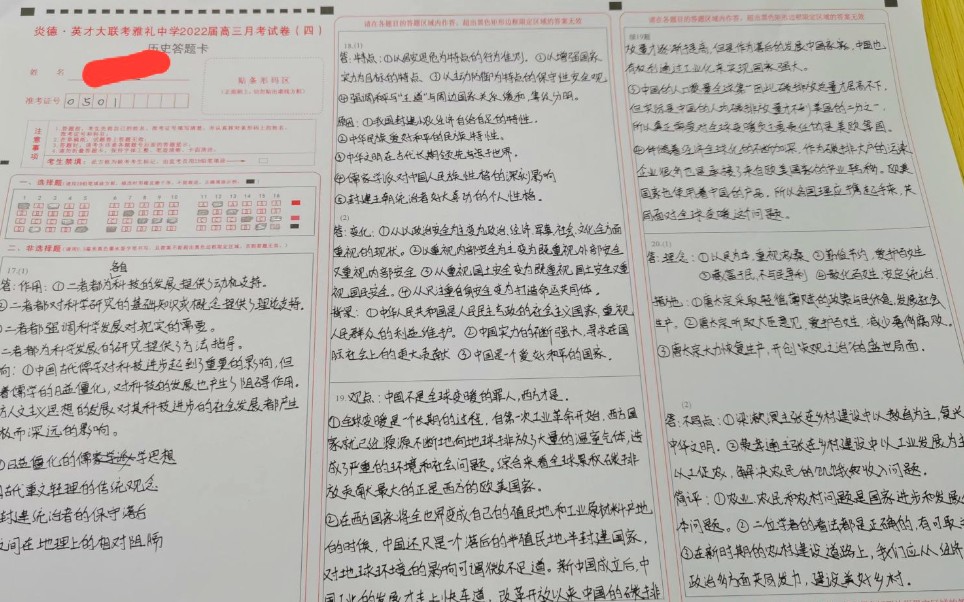 炎德·英才大联考雅礼中学2022届高三月考试卷（四）
历史答题卡
姓名
准考证号 0301
贴条形码区
注意事项
考生禁填：
一、选择题
1 2 3 4 5 6 7 8 9 10 11 12 13 14 15 16
二、非选择题
17.(1)
答：作用：①二者都为科技的发展提供了动机支持。
②二者都对科学研究的基础知识或概念提供了理论支持。
二者都强调科学发展对现实的需要。
二者都为科学发展的研究提供了方法指导。
向：①中国古代儒学对科技进步起到了重要的影响，但
着儒学的日益僵化，对科技的发展也产生了阻碍作用。
方人文主义思想的发展对其科技进步的社会发展都产生
极而深远的影响。
①日益僵化的儒家学思想
古代重文轻理的传统观念
封建统治者的保守落后
间在地理上的相对阻隔
请在各题目的答题区域内作答，超出黑色矩形边框限定区域的答案无效
18.(1)
答：特点：①以
②以增强国家
实力为目标的特点 ③以主动防御为特点的保守性安全观
④强调和平与“王道”与周边国家关系缓和，等级分明。
原因：①我国封建小农经济自给自足的特性。
②中华民族爱好和平的民族特性。
③中华文明在古代长期领先与世界。
④儒家学派对中国人民族性格的深刻影响
⑤封建王朝统治者好大喜功的个人性格。
(2)
答：变化：①从以政治安全为主变为政治，经济，军事，社会，文化全方面
重视的现状。②以重视内部安全为主变为既重视外部安全
又重视内部安全 ③从重视国土安全变为既重视国土安全又重
视国民安全。④从只注重自命安全变为打造命运共同体。
背景：①中华人民共和国是人民民主专政的社会主义国家，重视
人民群众的利益维护。②中国实力的不断强大，寻求在国
际社会上的更大贡献 ③中国是个爱好和平的国家。
19. 观点：中国不是全球变暖的罪人，西方才是。
①全球变暖是个长期的过程，自第一次工业革命开始，西方国
家就已经源源不断地向地球排放了大量的温室气体，造
成了严重的环境和社会问题。综合来看全球累积碳排
放贡献最大的正是西方的欧美国家。
②在西方国家将全世界变成自己的殖民地和工业原材料产地
的时候，中国还只是个落后的半殖民地半封建国家，
对地球环境的影响可谓微不足道。新中国成立后，中
国工业的发展才走上快车道，改革开放以来中国的碳排
请在各题目的答题区域内作答，超出黑色矩形边框限定区域的答案无效
续19题
放量才逐渐提高，但是作为落后的发展中国家，中国也
有权利通过工业化来实现国家强大。
③中国的人口数量全球第一，因此碳排放总量才居高不下，
但实际是中国的人均碳排放量不到美国的二分之一，
所以真正需要对全球变暖负主要责任的是美欧等国。
④伴随着经济全球化的不断加深，作为碳排大户的污染
企业很多也是承接了来自欧美国家的产业转移，欧美
国家也使用着中国的产品，所以各国理应携起手来，共
同面对全球变暖这一问题。
20.(1)
答：理念：①以民为本，重视农桑 ②勤俭节约，爱护百姓
③藏富于民，不与民争利 ④教化百姓，安定统治。
措施：①唐太宗采取轻徭薄赋的政策与民休息，发展社会
生产。②唐太宗听取大臣意见，爱护百姓，减少奢侈腐败。
③唐太宗大力恢复生产，开创“贞观之治”的盛世局面。
(2)
答：不同点：①梁漱溟主张在乡村建设中以教育为主，复兴
中华文明。②费孝通主张在乡村建设中以工业发展为主
以工促农，解决农民的收入问题。
简评：①农业，农民和农村问题是国家进步和发展
本问题。②二位学者的看法都是正确的，有可取之
③在新时期的农村建设道路上，我们应从经济
政治多方面共同发力，建设美好乡村。